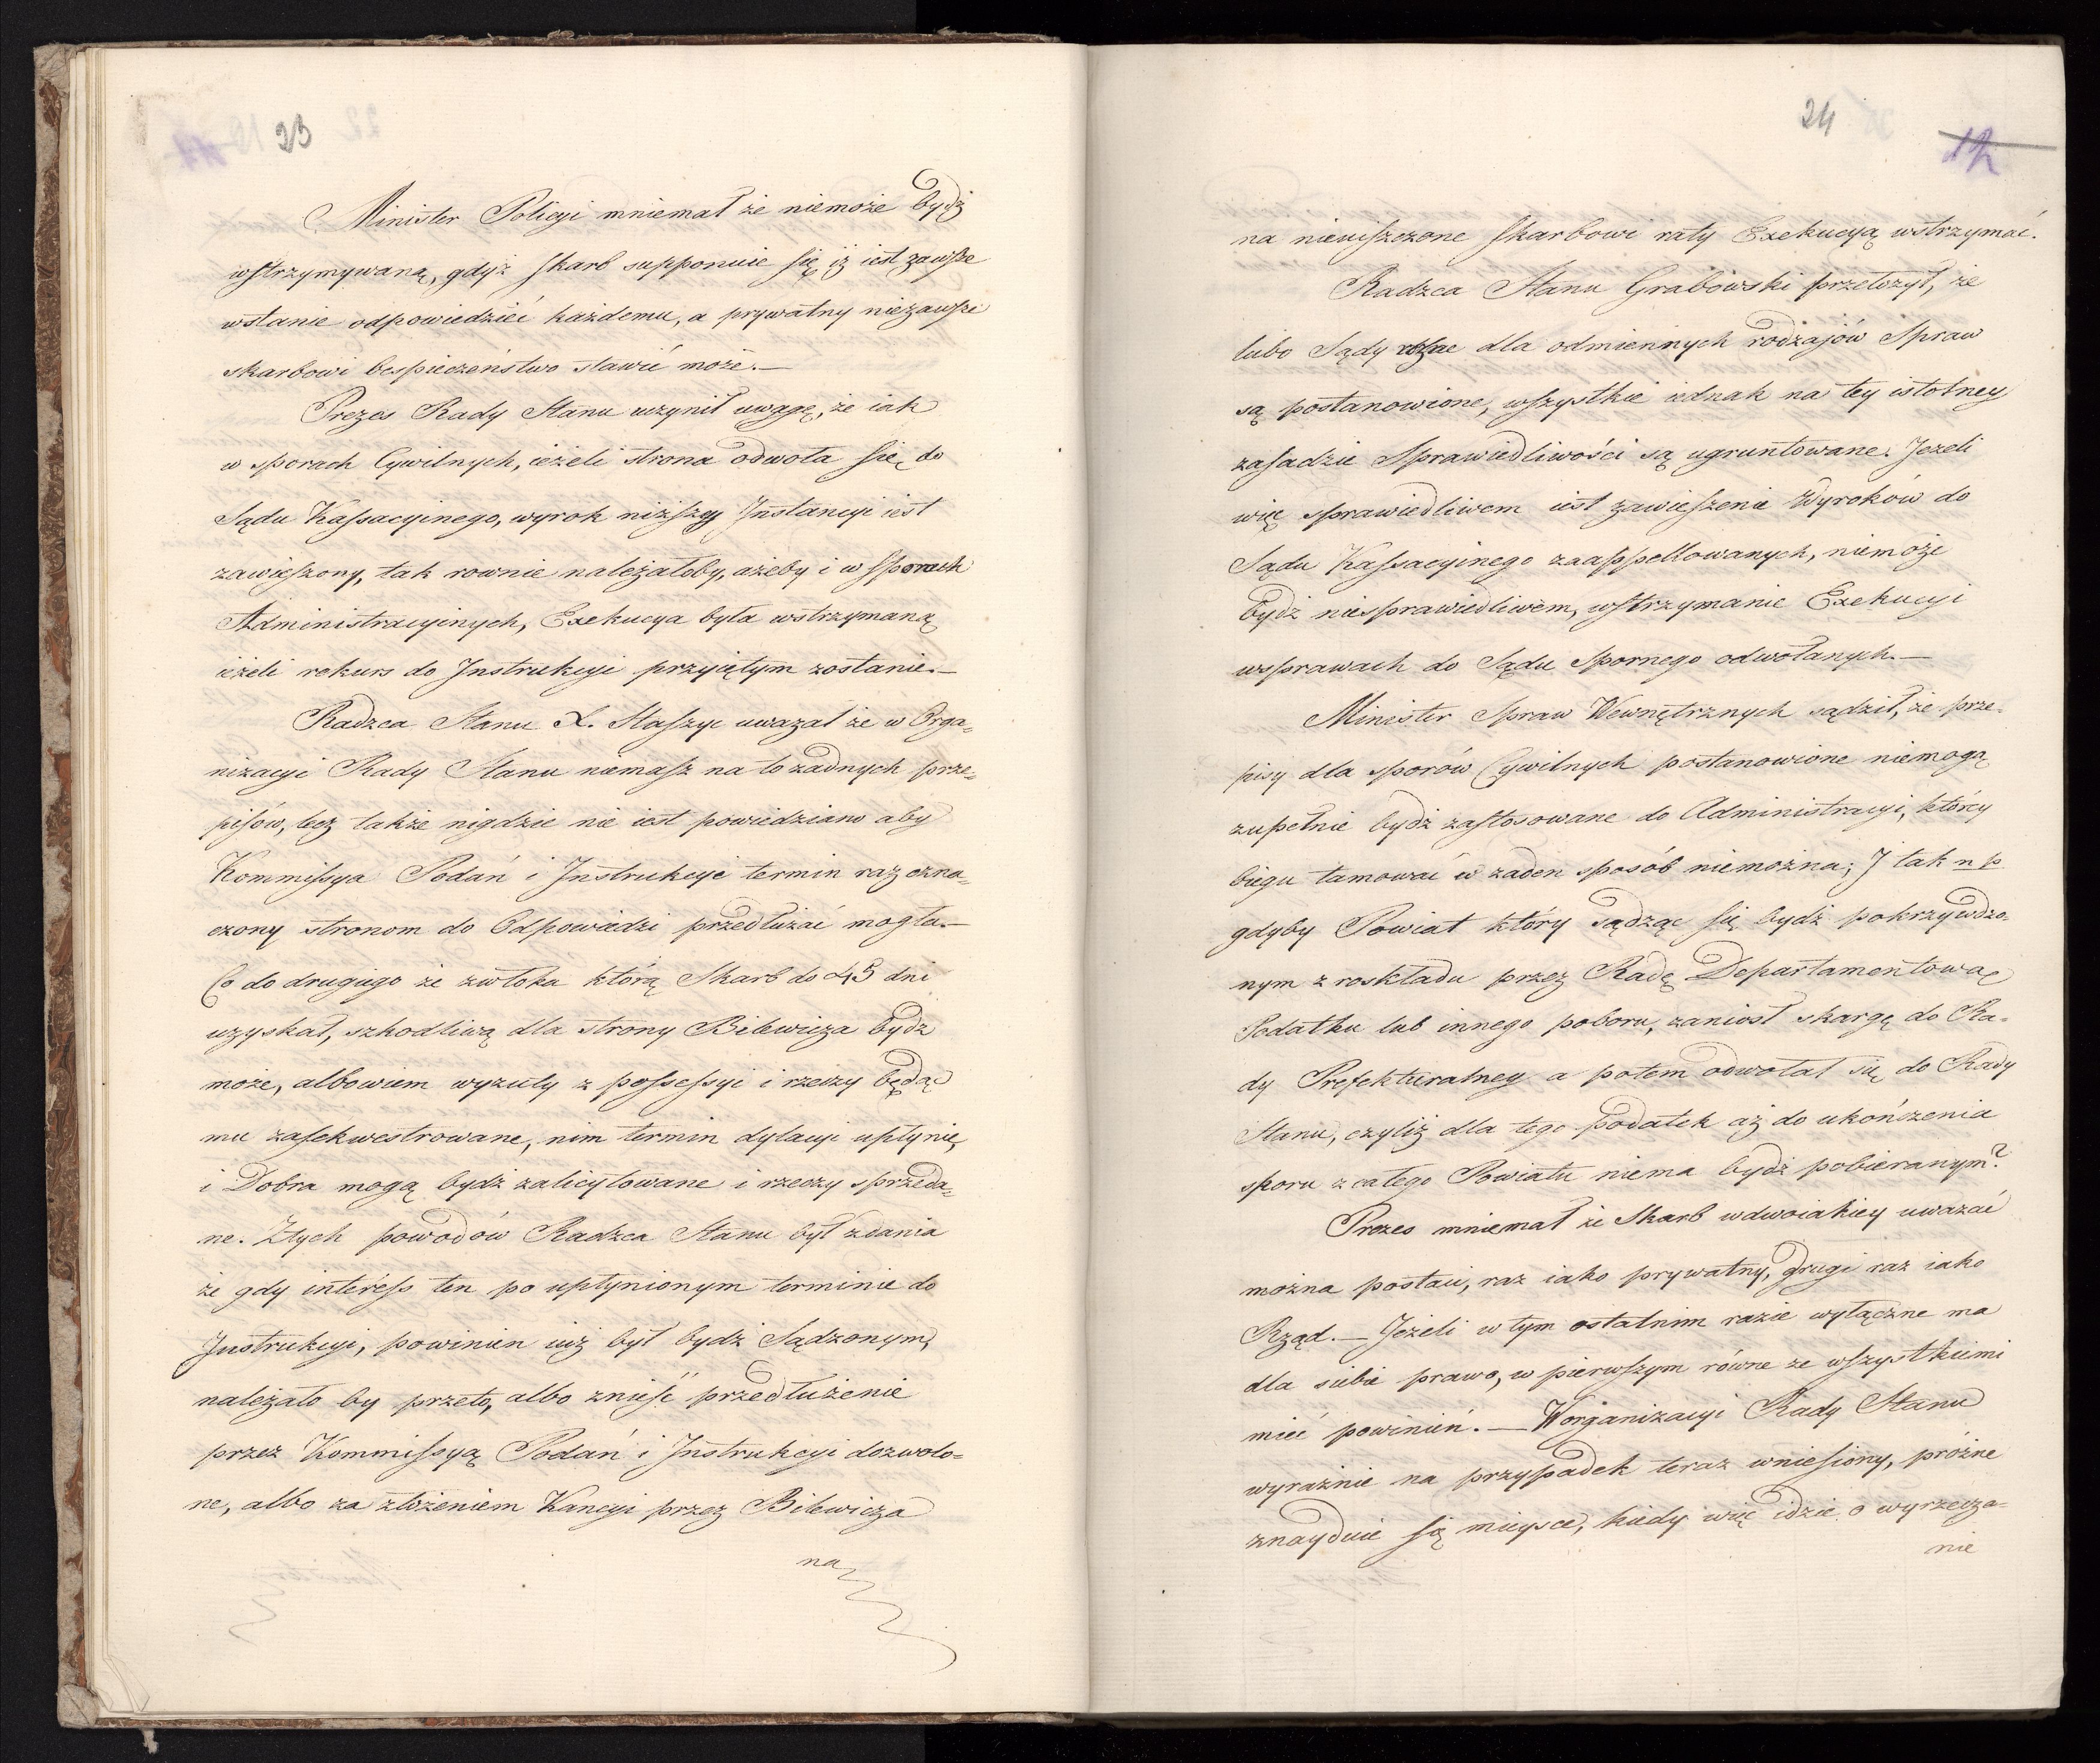 23
Minister Policyi mniemał że niemoże bydź
wstrzymywaną, gdyż skarb supponuie się iż iest zawsze
wstanie odpowiedzieć każdemu, a prywatny niezawsze
skarbowi bespieczeństwo stawić może.—
Prezes Rady Stanu uczynił uwagę, że iak
w sporach Cywilnych, ieżeli strona odwoła się do
Sądu Kassacyinego, wyrok niższey Instancyi iest
zawieszony, tak rownie należałoby, ażeby i w sporach
Administracyinych, Exekucya była wstrzymaną
ieżeli rekurs do Instrukcyi przyiętym zostanie.—
Radzca Stanu X. Staszyc uwazał że w Orga=
nizacyi Rady Stanu niemasz na to żadnych prze=
pisów, lecz także nigdzie nie iest powiedziano aby
Kommissya Podań i Instrukcyi termin raz ozna=
czony stronom do Odpowiedzi przedłużać mogła.—
Co do drugiego że zwłoka którą Skarb do 45 dni
uzyskał, szkodliwą dla strony Bilewicza bydz
może, albowiem wyzuty z possessyi i rzeczy będąc
mu zasekwestrowane, nim termin dylacyi upłynie,
i Dobra mogą bydź zalicytowane i rzeczy sprzeda=
ne. Ztych powodów Radzca Stanu był zdania
że gdy interess ten po upłynionym terminie do
Instrukcyi, powinien iuż był bydź Sądzonym,
należało by przeto, albo znieść przedłużenie
przez Kommissyą Podań i Instrukcyi dozwolo=
ne, albo za złożeniem Kaucyi przez Bilewicza
na
24
12
na nieuiszczone skarbowi raty Exekucyą wstrzymać.
Radzca Stanu Grabowski przełożył, że
lubo Sądy różne dla odmiennych rodzajów Spraw
są postanowione, wszystkie iednak na tey istotney
zasadzie Sprawiedliwości są ugruntowane. Jezeli
więc sprawiedliwem iest zawieszenie Wyroków do
Sądu Kassacyinego zaappellowanych, niemoże
bydź niesprawiedliwem, wstrzymanie Exekucyi
wsprawach do Sądu Spornego odwołanych.—
Minister Spraw Wewnętrznych sądził, że prze-
pisy dla sporów Cywilnych postanowione niemogą
zupełnie bydź zastosowane do Administracyi, którey
biegu tamować w zaden sposób niemożna; I tak n p
gdyby Powiat który sądząc się bydź pokrzywdzo-
nym z roskładu przez Radę Departamentową
Podatku lub innego poboru, zaniosł skargę do Ra-
dy Prefekturalney a potem odwołał się do Rady
Stanu, czyliż dla tego podatek aż do ukończenia
sporu z całego Powiatu niema bydź pobieranym?
Prezes mniemał że Skarb wdwoiakiey uwazać
można postaci, raz iako prywatny, drugi raz iako
Rząd.— Jeżeli w tym ostatnim razie wyłączne ma
dla siebie prawo, w pierwszym równe ze wszystkiemi
mieć powinien.— Worganizacyi Rady Stanu
wyraźnie na przypadek teraz wniesiony, próżne
znayduie się mieysce, kiedy więc idzie o wyrzecza-
nie